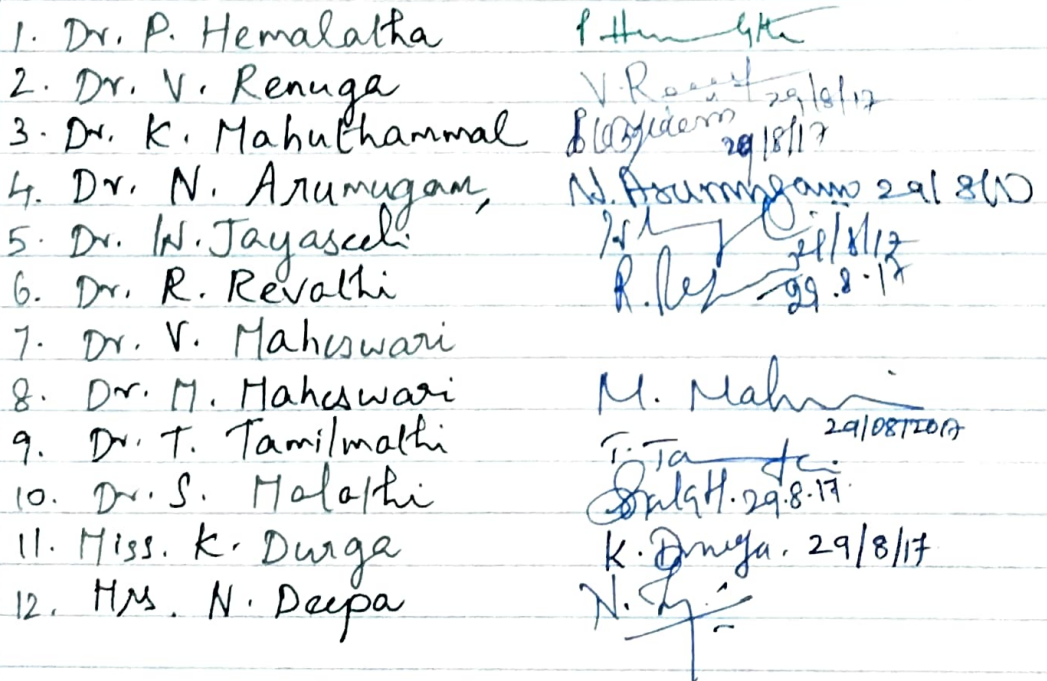 1. Dr. P. Hemalatha
2. Dr. V. Renuga 29/8/17
3. Dr. K. Mahuthammal 29/8/17
4. Dr. N. Arumugam, N. Arumugam 29/8/17
5. Dr. N. Jayaseeli
6. Dr. R. Revathi 29.8.17
7. Dr. V. Maheswari
8. Dr. M. Maheswari M.
29/08/2017
9. Dr. T. Tamilmathi
10. Dr. S. Malathi 29.8.17
11. Miss. K. Durga K. Durga. 29/8/17
12. Mrs. N. Deepa N.